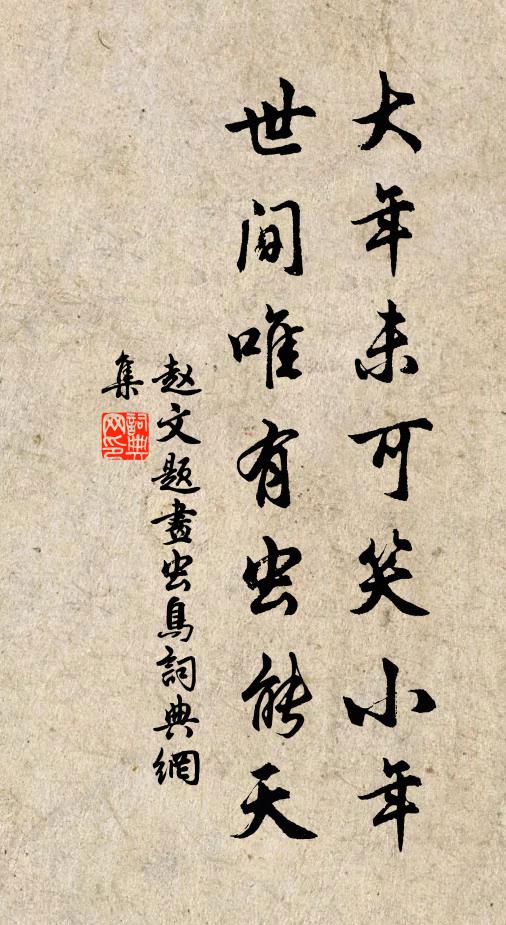 大年未可笑小年
世间唯有虫能天
赵文题畫虫鳥詞典網
集
詞典
网印